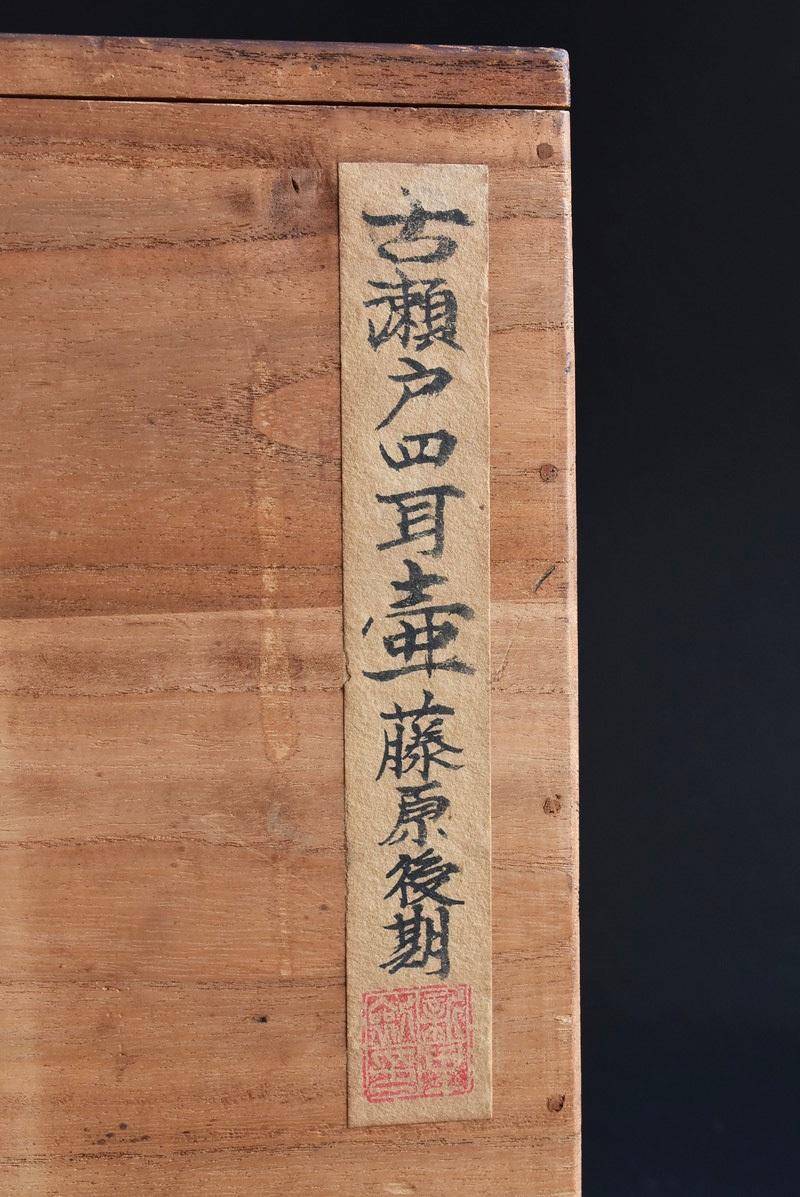 古瀬戸四耳壷藤原後期